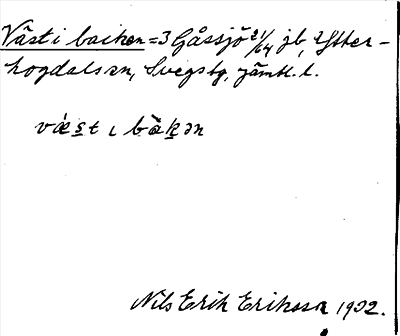 Väst i backen = 3 Gåssjö 21/64 jb, Ytter-
hogdals sn, Svegs tg, jämtl. l.
væst ı bàkən
Nils Erik Eriksson 1932.